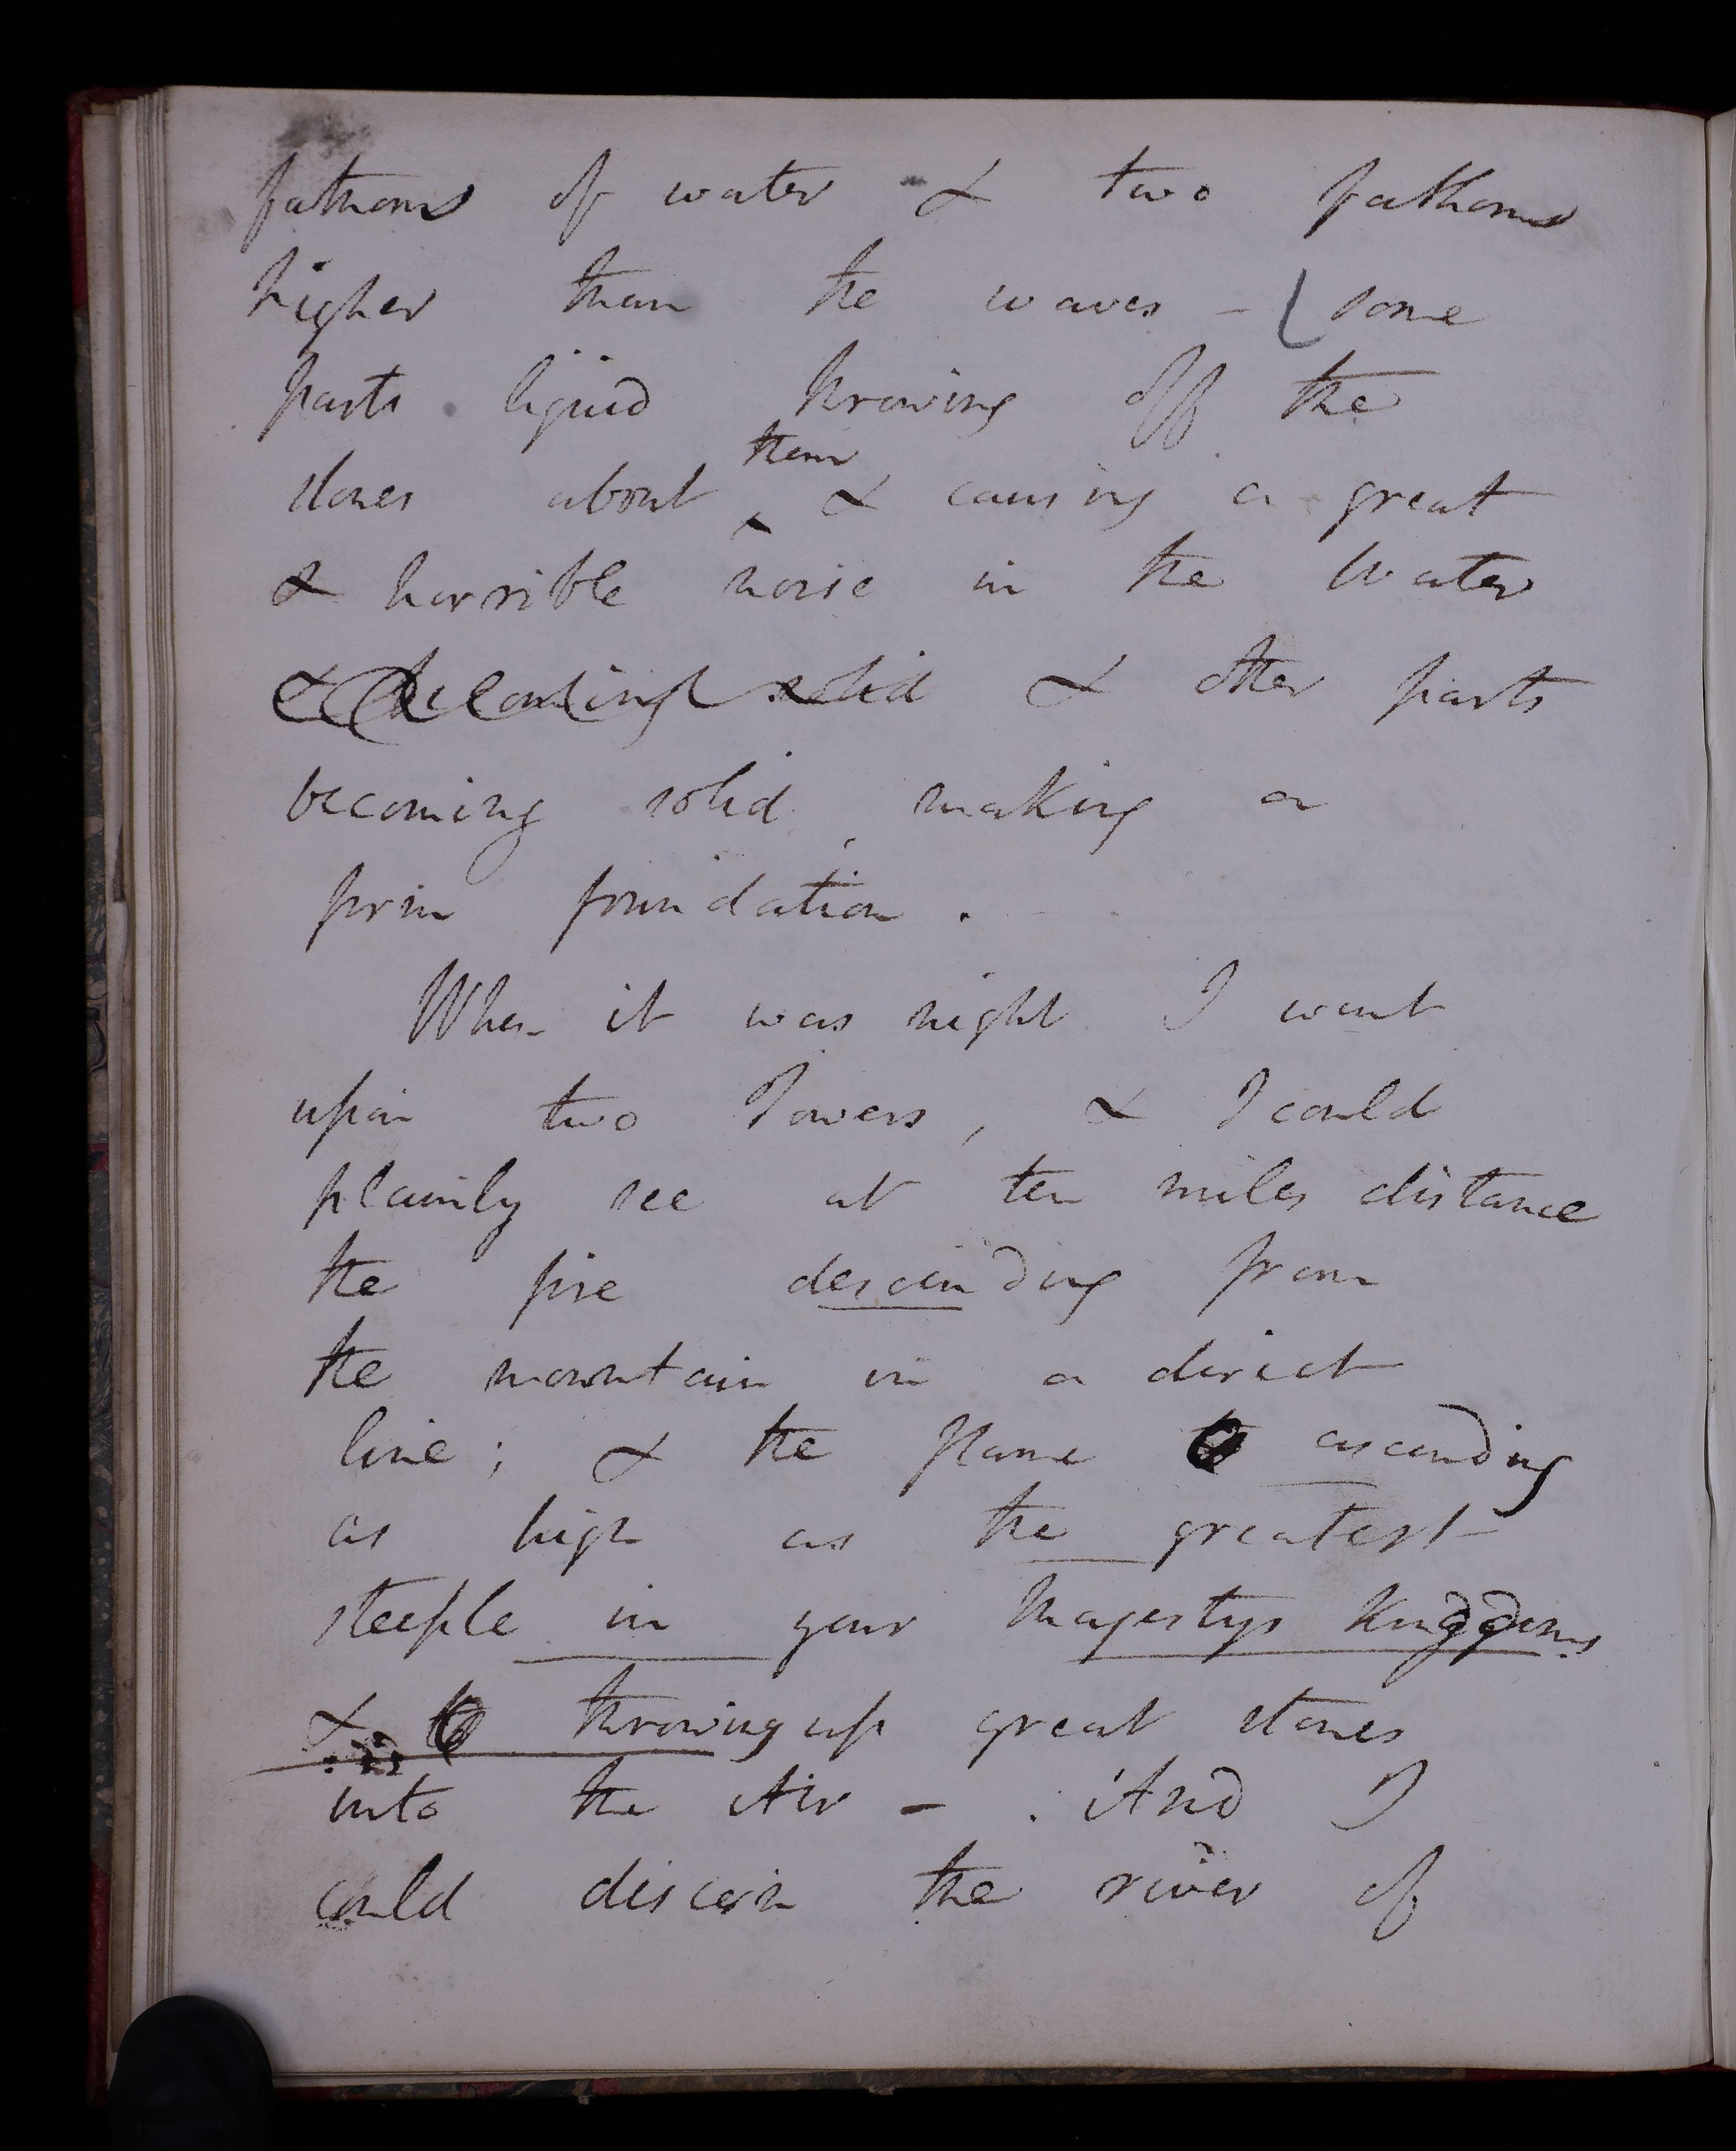 fathoms of water & two fathoms
higher than the waves - ( some
parts liquid throwing off the
stones about ^ them & causing a great
& horrible noise in the Water
& becoming solid & other parts
becoming solid making a
firm foundation .
When it was night I went
upon two Towers, & I could
plainly see at ten miles distance
the fire descending from
the mountain in a direct
line; & the flame ascending
as high as the greatest
steeple in your Majestys Kingdoms
& throwing up great stones
into the Air - . And I
could discern the river of